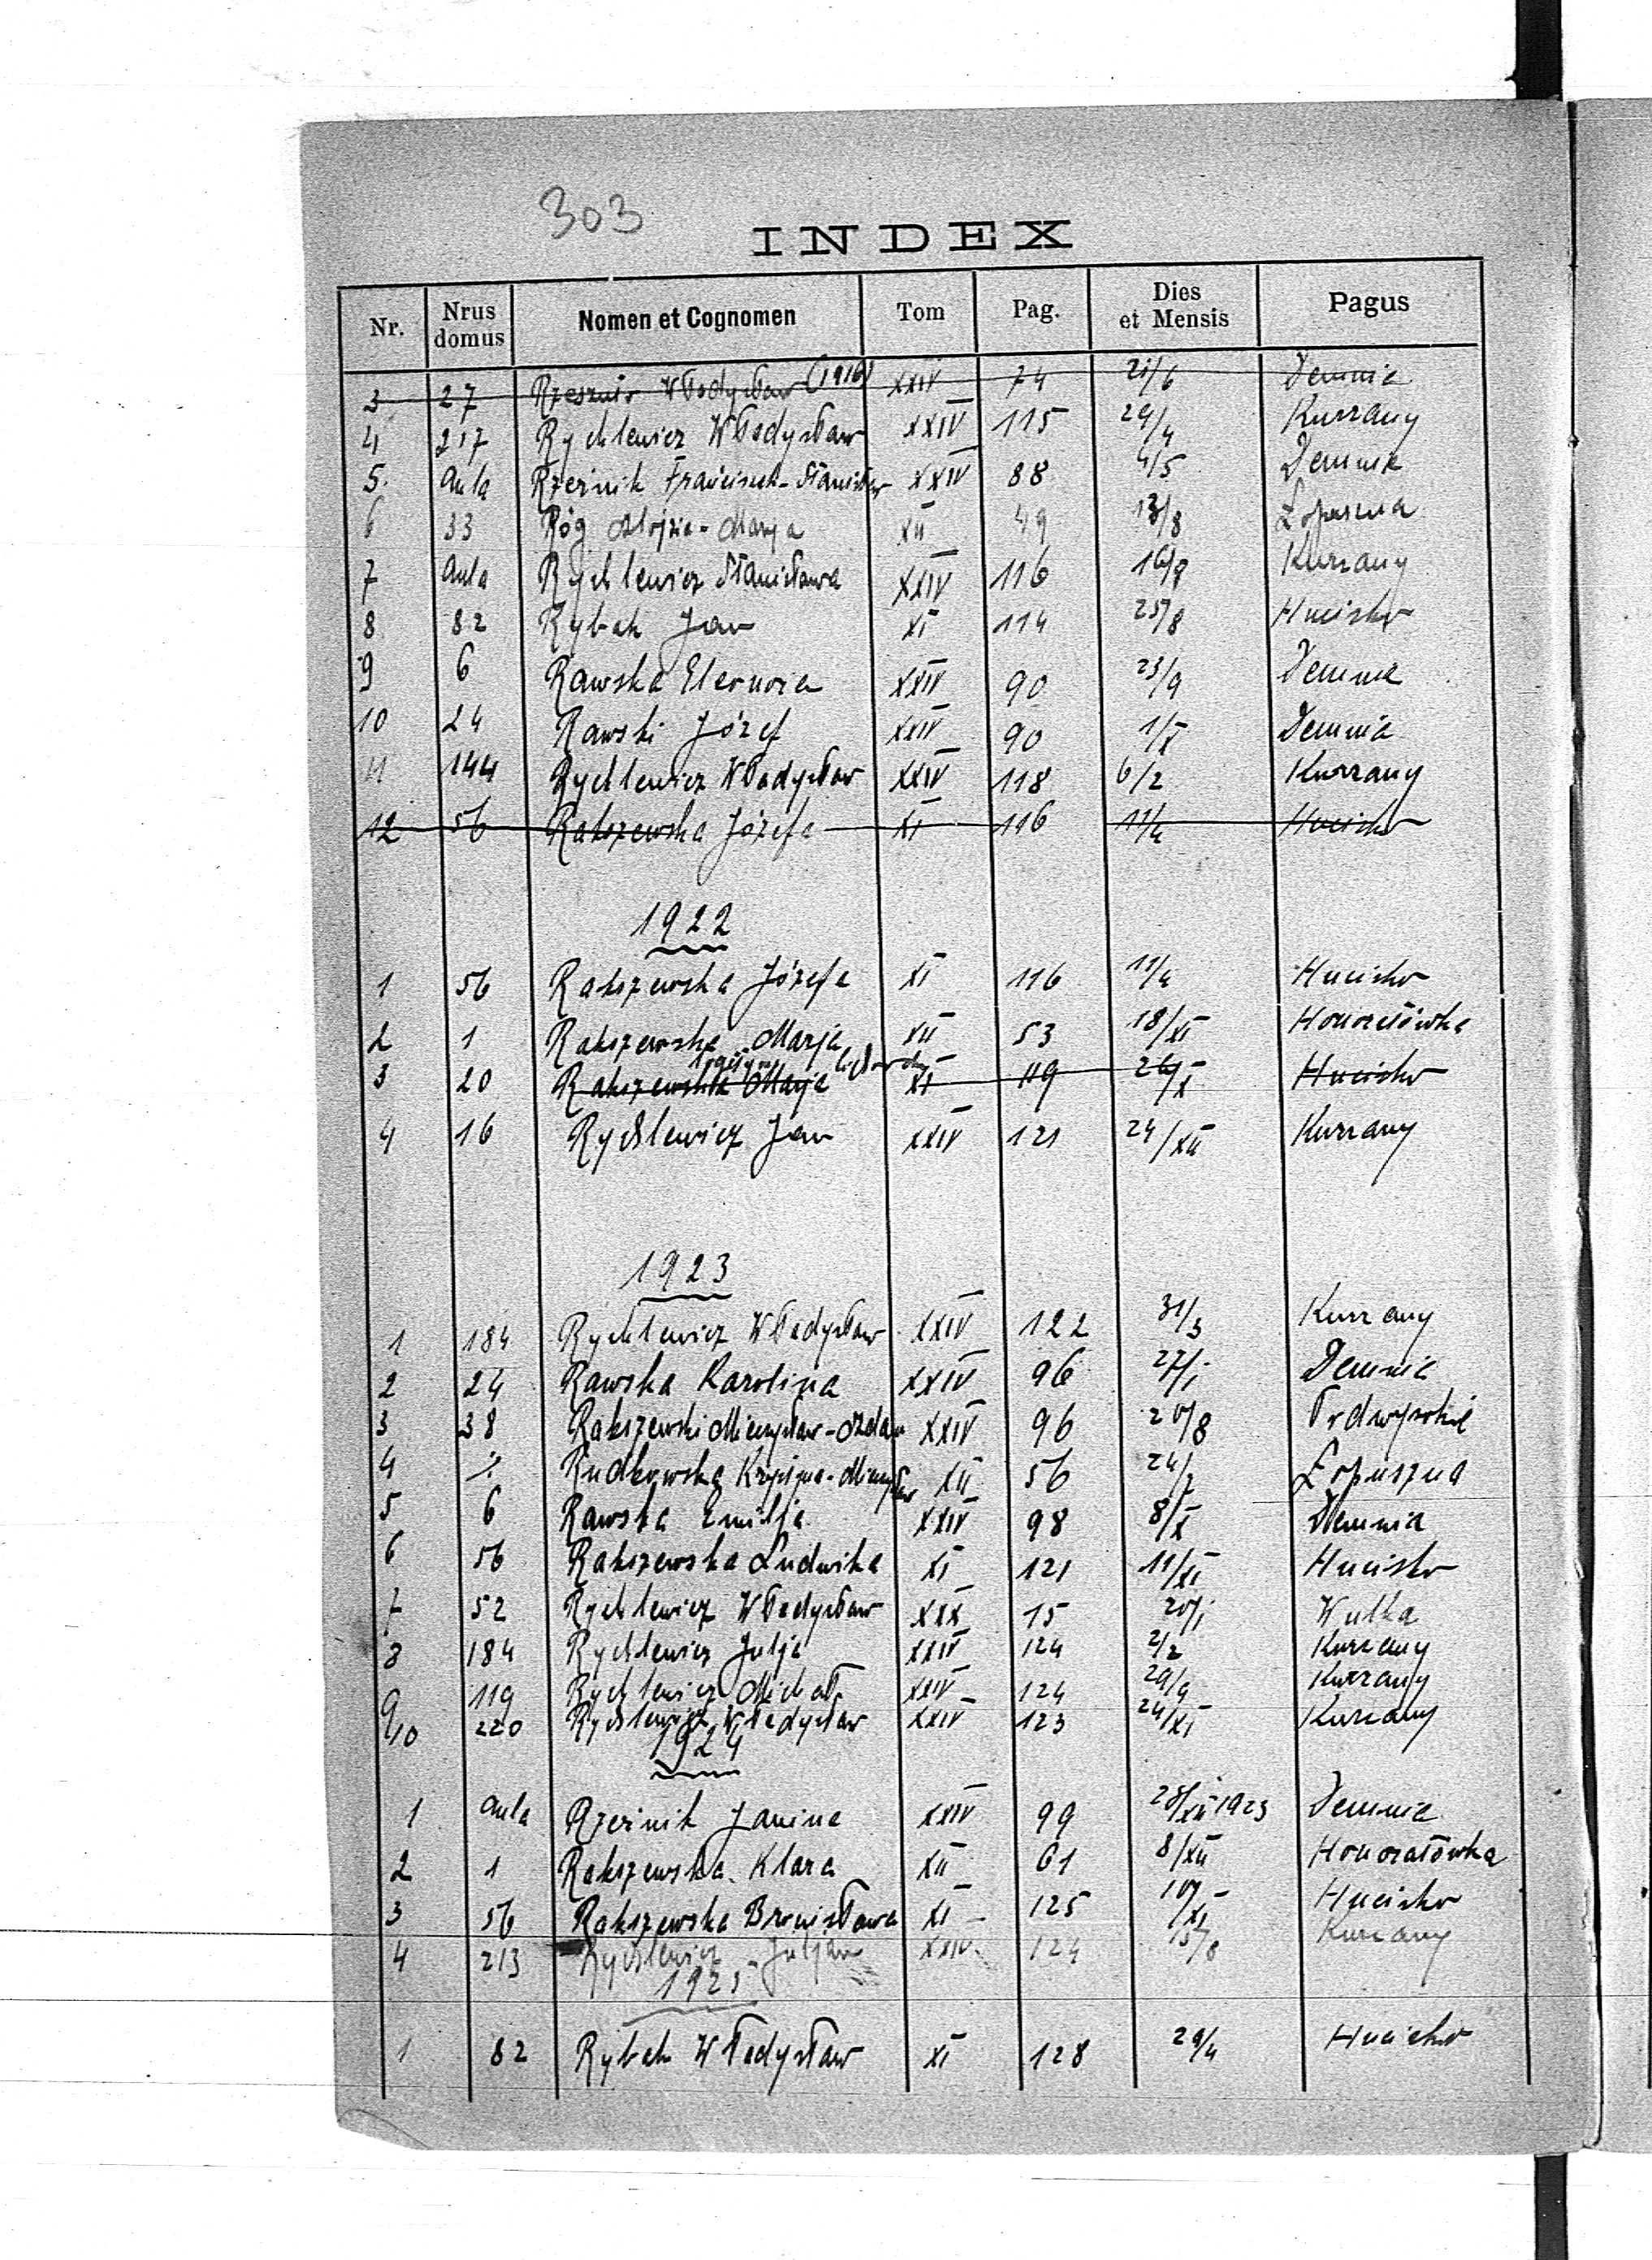 303
INDEX
Nr. Nrus domus Nomen et Cognomen Tom Pag. Dies et Mensis Pagus
3 27 Władysław (1916) XXIV 74 21/6 Demnia
4 217 Rychlewicz Władysław XXIV 115 29/4 Kurzany
5. Aula Rzeźnik Franciszek-Stanisław XXIV 88 4/5 Demnia
6 33 Róg Alojzia-Marja XII 49 13/8 Łopuszna
7 Aula Rychlewicz Stanisława XXIV 116 Kurzany
8 82 Rybak Jan XI 114 25/8 Hucisko
9 6 Rawska Eleonora XXIV 90 23/9 Demnia
10 24 Rawski Józef XXIV 90 1/X Demnia
11 144 Rychlewicz Władysław XXIV 118 6/2 Kurzany
12 56 Rakszewska Józefa XI 116 11/4 Hucisko
1922
1 56 Rakszewska Józefa XI 116 11/4 Hucisko
2 1 Rakszewska Marja XII 53 18/XI Honoratówka
3 20 Rakszewska Marja XI 119 26/X Hucisko
4 16 Rychlewicz Jan XXIV 121 24/XII Kurzany
1923
1 184 Rychlewicz Władysław XXIV 122 31/3 Kurzany
2 24 Rawska Karolina XXIV 96 27/I Demnia
3 38 Rakszewski Mieczysław-Adam XXIV 96 20/8 Podwysokie
4 Rudkowska Krystyna- XII 56 24/2 Łopuszna
5 6 Rawska Emilja XXIV 98 8/X Demnia
6 56 Rakszewska Ludwika XI 121 11/XI Hucisko
7 52 Rychlewicz Władysław XXX 15 20/I Wulka
8 184 Rychlewicz Julja XXIV 124 2/2 Kurzany
9 119 Rychlewicz Michał XXIV 124 29/9 Kurzany
10 220 Rychlewicz Władysław XXIV 123 24/XI Kurzany
1924
1 Aula Rzeźnik Janina XXIV 99 28/XII 1923 Demnia
2 1 Rakszewska Klara XII 61 8/XII Honoratówka
3 56 Rakszewska Bronisława XI 125 10/XI Hucisko
4 213 Rychlewicz Juljan XXIV 124 15/8 Kurzany
1925
1 82 Rybak Władysław XI 128 29/4 Hucisko